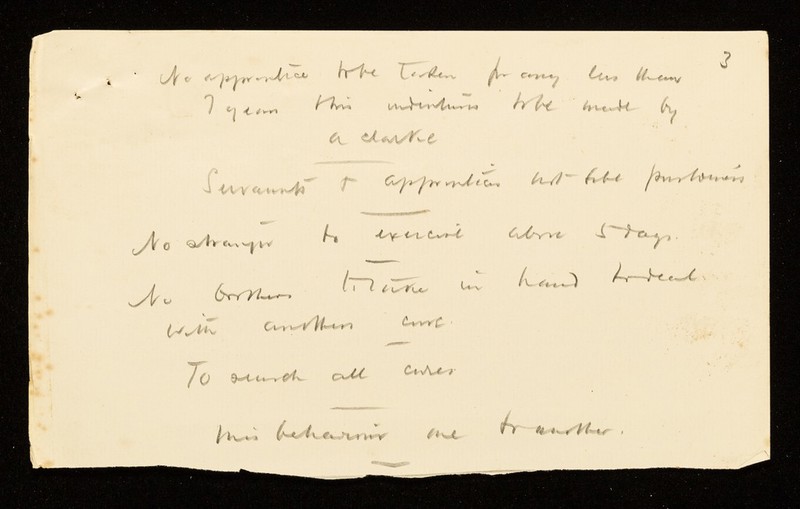 3
No apprentice to be Taken for any less than
7 years this indentures to be made by
a clarke
Servaunts & apprentices not to be purloiners
No stranger to exercise above 5 days.
No brothers to Take in hand to deal
with anothers cure.
To search all cures
Misbehaviour one to another.